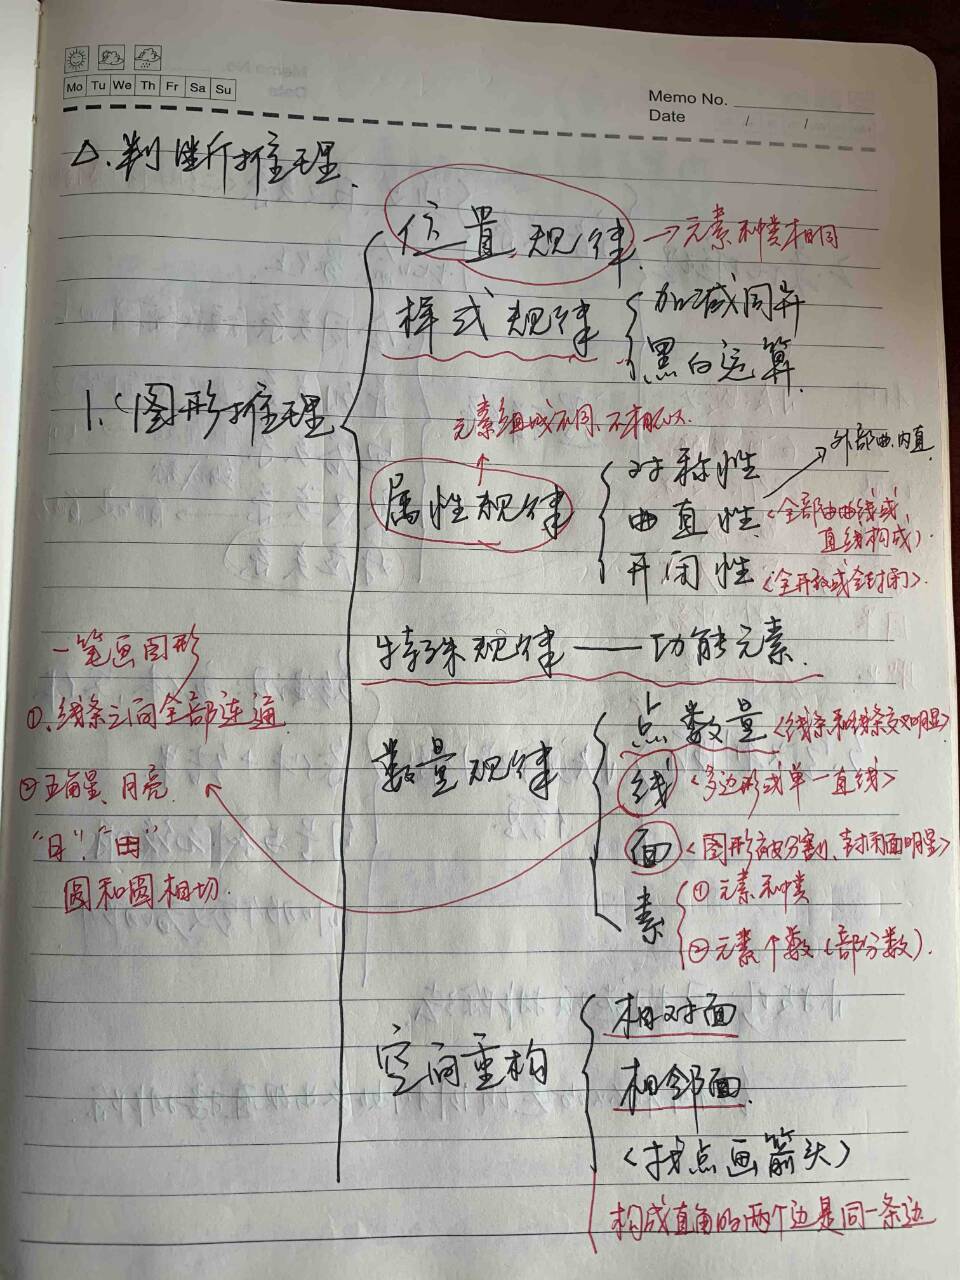 Mo Tu We Th Fr Sa Su
Memo No.
Date / /
△.判断推理.
位置规律. → 元素种类相同
样式规律 加减同异
黑白运算.
1.《图形推理
元素组成不同、不相似.
属性规律
对称性
外部曲.内直
曲直性 <全部由曲线或
直线构成>.
开闭性 <全开放或全封闭>.
特殊规律 —— 功能元素.
一笔画图形
①.线条之间全部连通
②五角星、月亮.
"日"、"田"
圆和圆相切.
数量规律
点数量 <线条和线条交叉明显>
线 <多边形或单一直线>
面 <图形被分割、封闭面明显>
素
①元素种类
②元素个数(部分数).
空间重构
相对面
相邻面.
<找点画箭头>
构成直角的两个边是同一条边